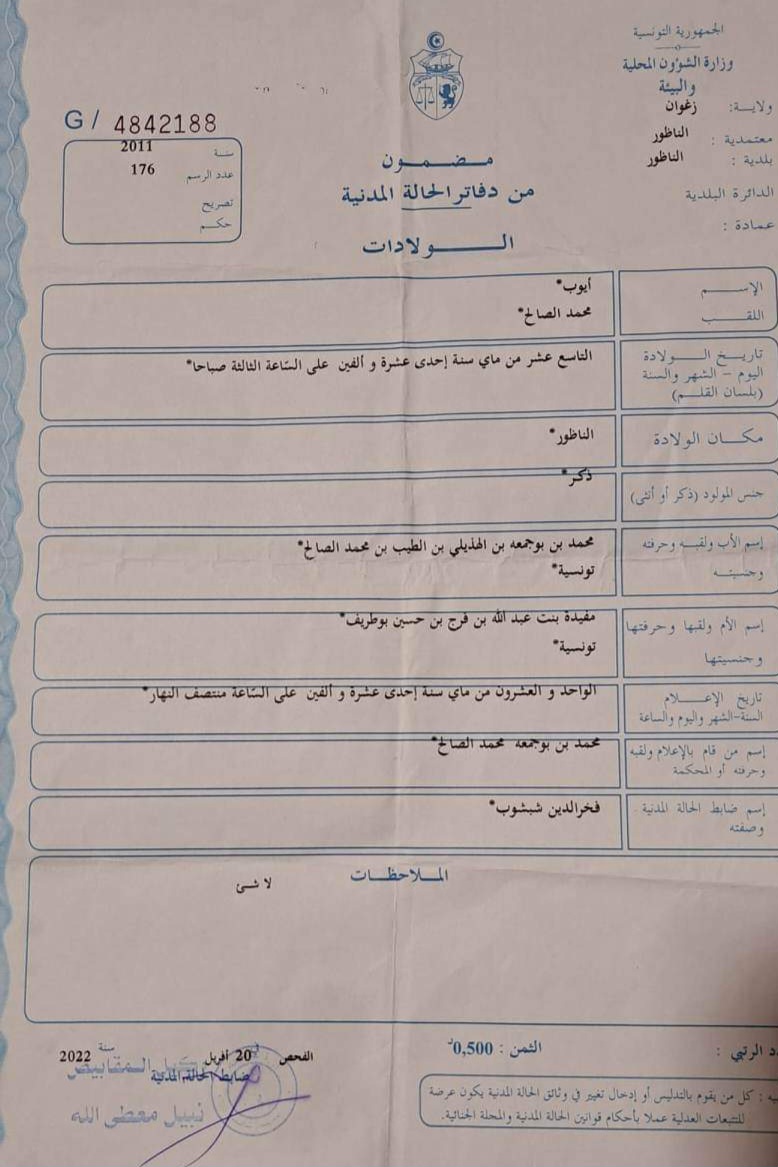 الجمهورية التونسية
وزارة الشؤون المحلية
والبيئة
ولايـة: زغوان
معتمدية : الناظور
بلدية : الناظور
الدائرة البلدية
عمادة :
G / 4842188
سنة 2011
عدد الرسم 176
تصريح
حكم
مضمون
من دفاتر الحالة المدنية
الولادات
الإسم أيوب*
اللقب محمد الصالح*
تاريخ الولادة التاسع عشر من ماي سنة إحدى عشرة و ألفين على السّاعة الثالثة صباحا*
اليوم - الشهر والسنة
(بلسان القلم)
مكان الولادة الناظور*
جنس المولود (ذكر أو أنثى) ذكر*
إسم الأب ولقبه وحرفته محمد بن بوجمعه بن الهذيلي بن الطيب بن محمد الصالح*
وجنسيته تونسية*
إسم الأم ولقبها وحرفتها مفيدة بنت عبد الله بن فرج بن حسين بوطريف*
وجنسيتها تونسية*
تاريخ الإعلام الواحد و العشرون من ماي سنة إحدى عشرة و ألفين على السّاعة منتصف النهار*
السنة-الشهر واليوم والساعة
إسم من قام بالإعلام ولقبه محمد بن بوجمعه محمد الصالح*
وحرفته أو المحكمة
إسم ضابط الحالة المدنية فخرالدين شبشوب*
وصفته
الملاحظات
لا شئ
الرتبي :
الثمن : 0,500د
الفحص في 20 أفريل سنة 2022
ضابط الحالة المدنية
نبيل معطى الله
: كل من يقوم بالتدليس أو إدخال تغيير في وثائق الحالة المدنية يكون عرضة
للتتبعات العدلية عملا بأحكام قوانين الحالة المدنية والمجلة الجنائية.